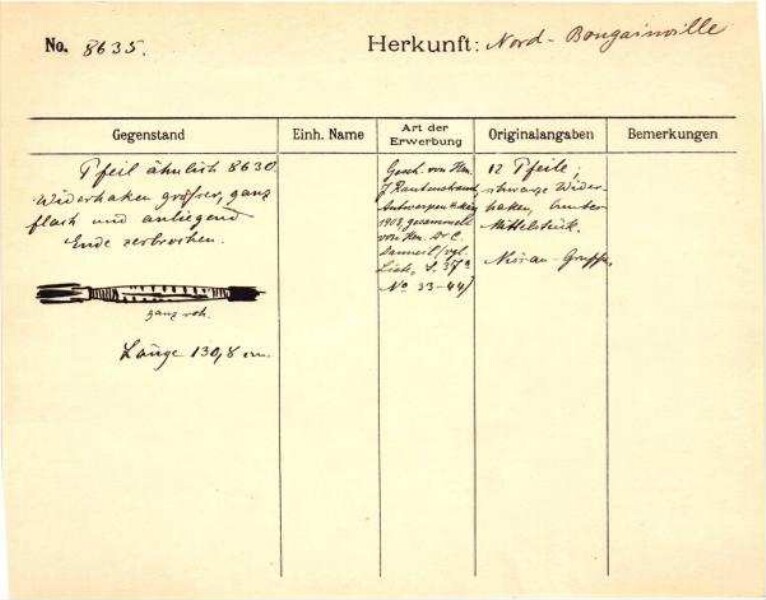 No. 8635.
Herkunft: Nord-Bougainville
Gegenstand
Einh. Name
Art der Erwerbung
Originalangaben
Bemerkungen
Pfeil ähnlich 8630
Widerhaken größer, ganz
flach und anliegend
Ende zerbrochen.
ganz roh.
Länge 130,8 cm.
Gesch. von Hrn.
Antwerpen
1903, gesammelt
von Hrn. Dr C.
/vgl.
Liste, S. 37a
No 33-44)
12 Pfeile;
schwarze Wider-
haken, bunter
Mittelstück.
Nissan-Gruppe.